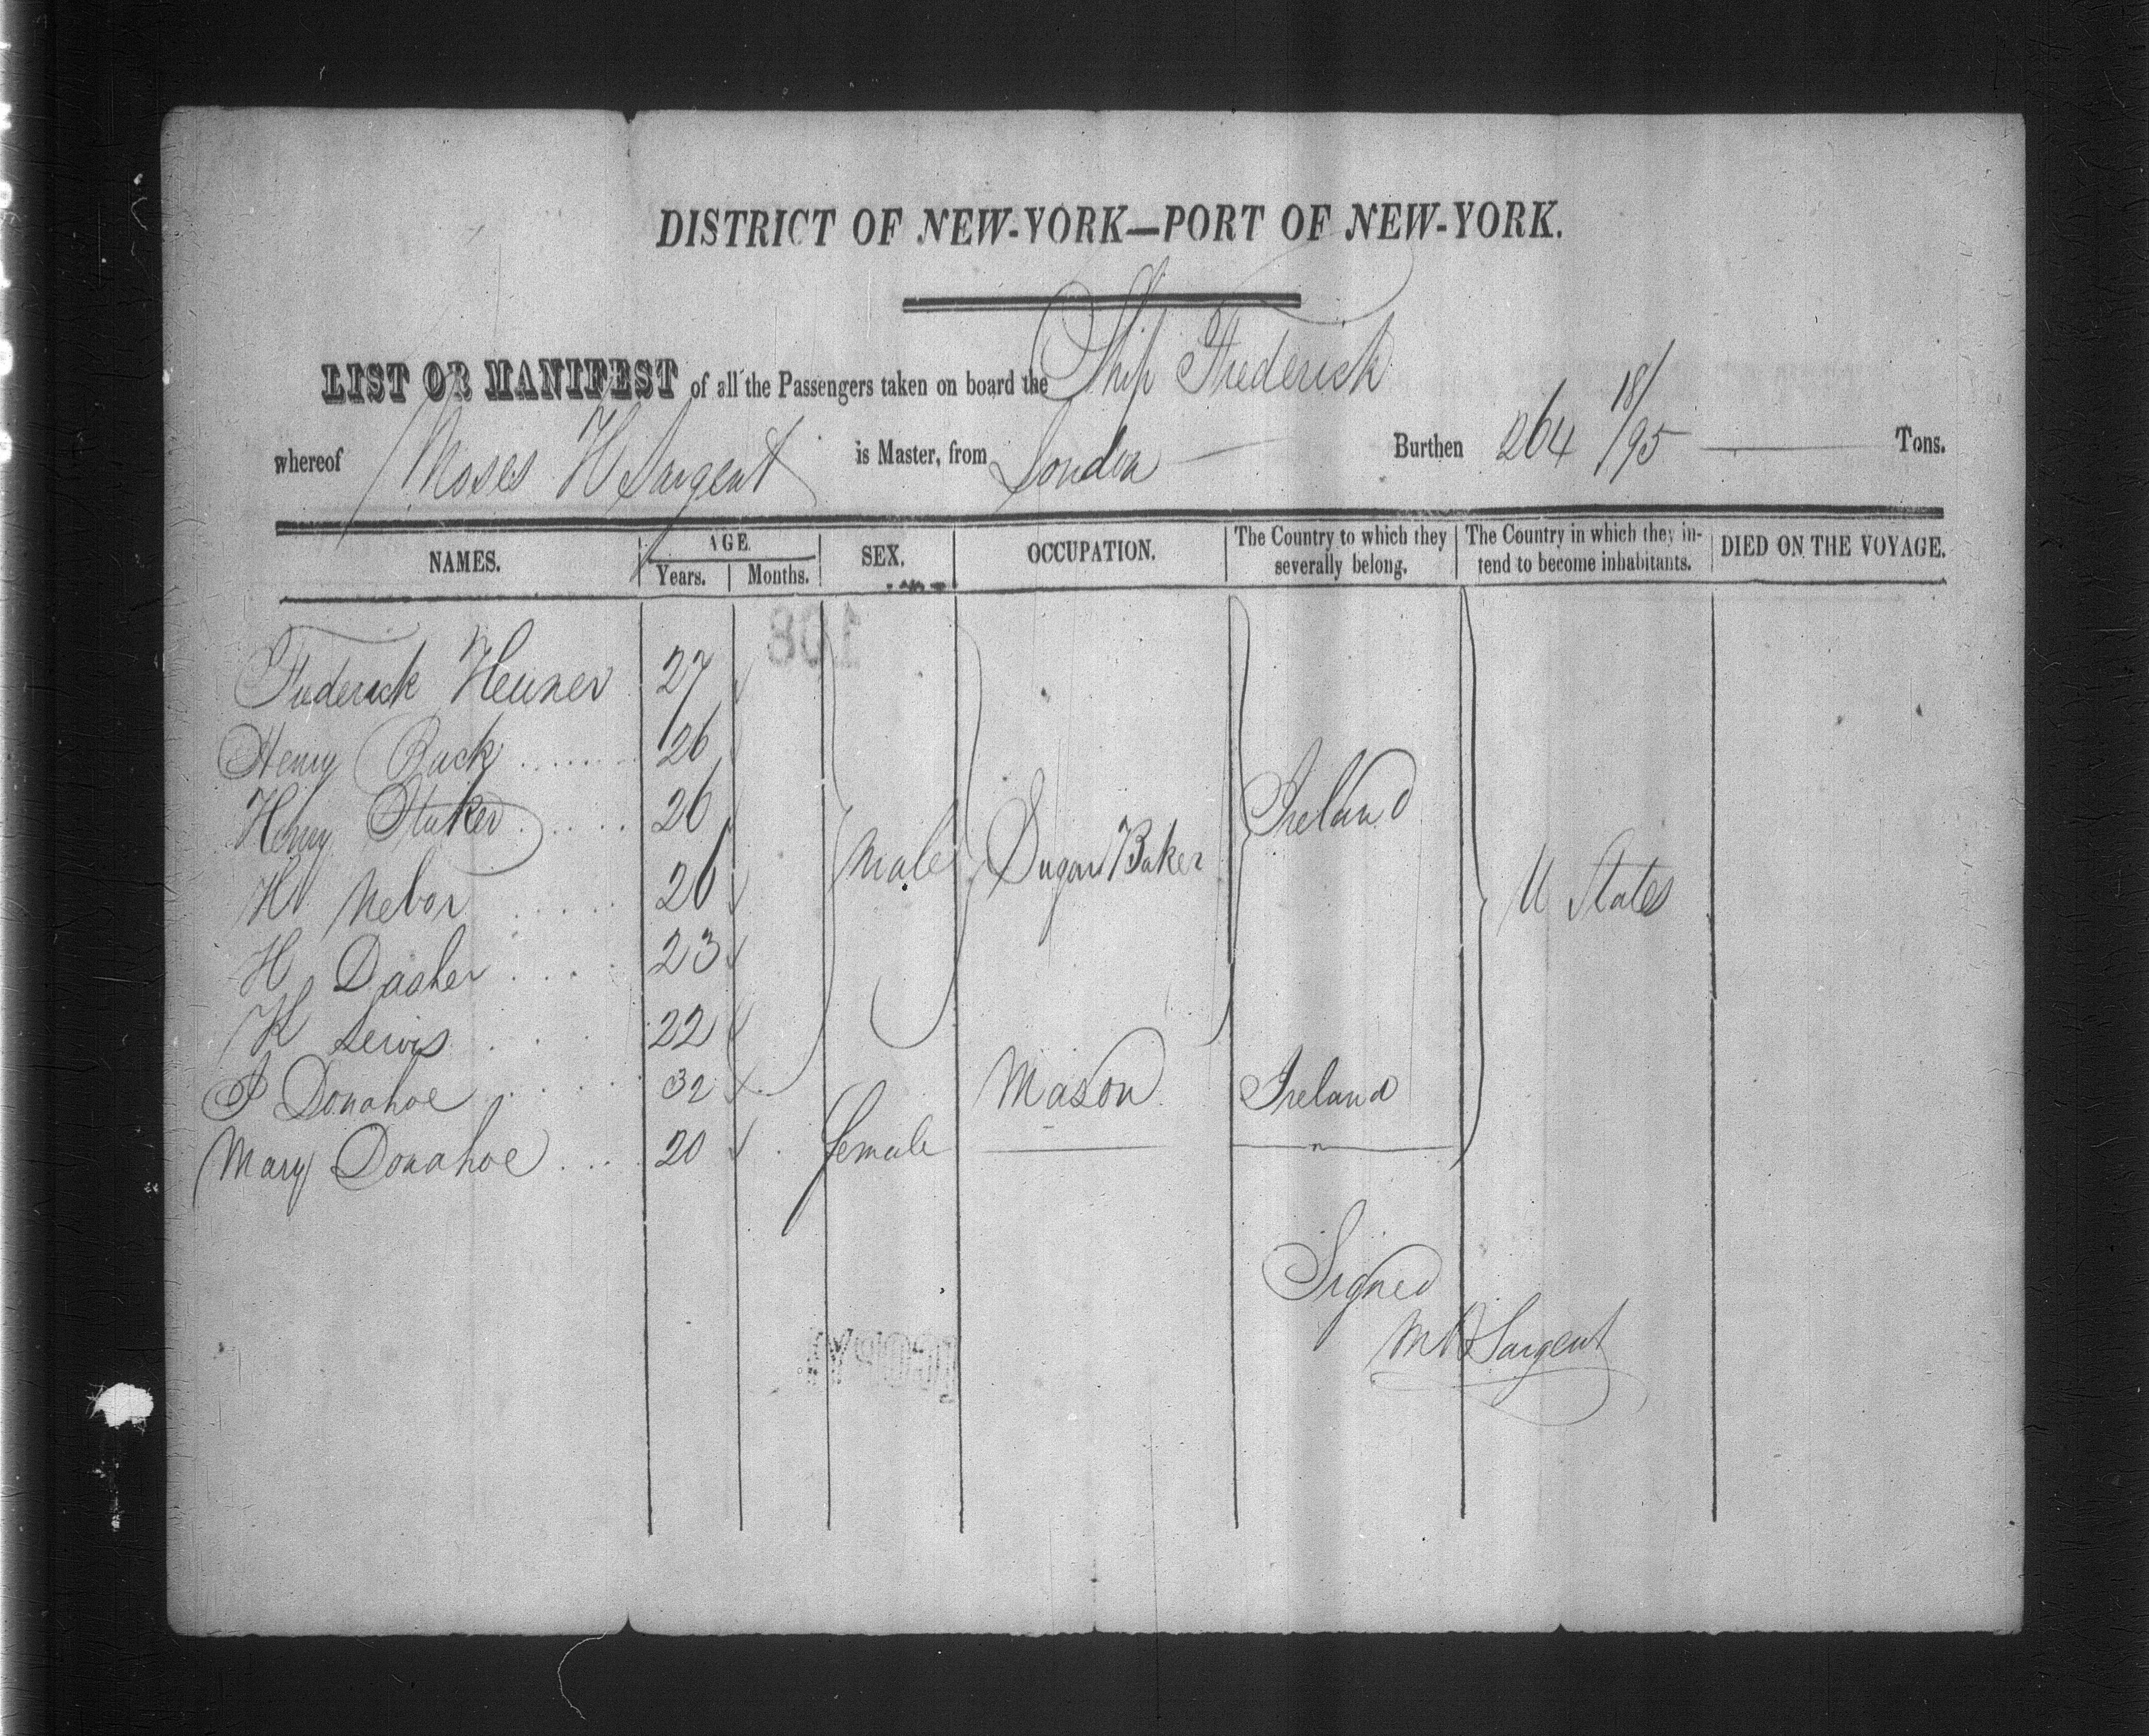 DISTRICT OF NEW-YORK—PORT OF NEW-YORK.
LIST OR MANIFEST of all the Passengers taken on board the Ship Frederick
whereof Moses H Sargent is Master, from London Burthen 264 18/95 Tons.
NAMES. AGE. Years. Months. SEX. OCCUPATION. The Country to which they severally belong. The Country in which they intend to become inhabitants. DIED ON THE VOYAGE.
108
Frederick Heuner 27
Henry Buck 26
Henry Staker 26 Male Sugar Baker Ireland
H Nebor 26 U States
H Dasher 23
H Lewis 22
P Donahoe 32 Mason Ireland
Mary Donahoe 20 female "
Signed
M H Sargent